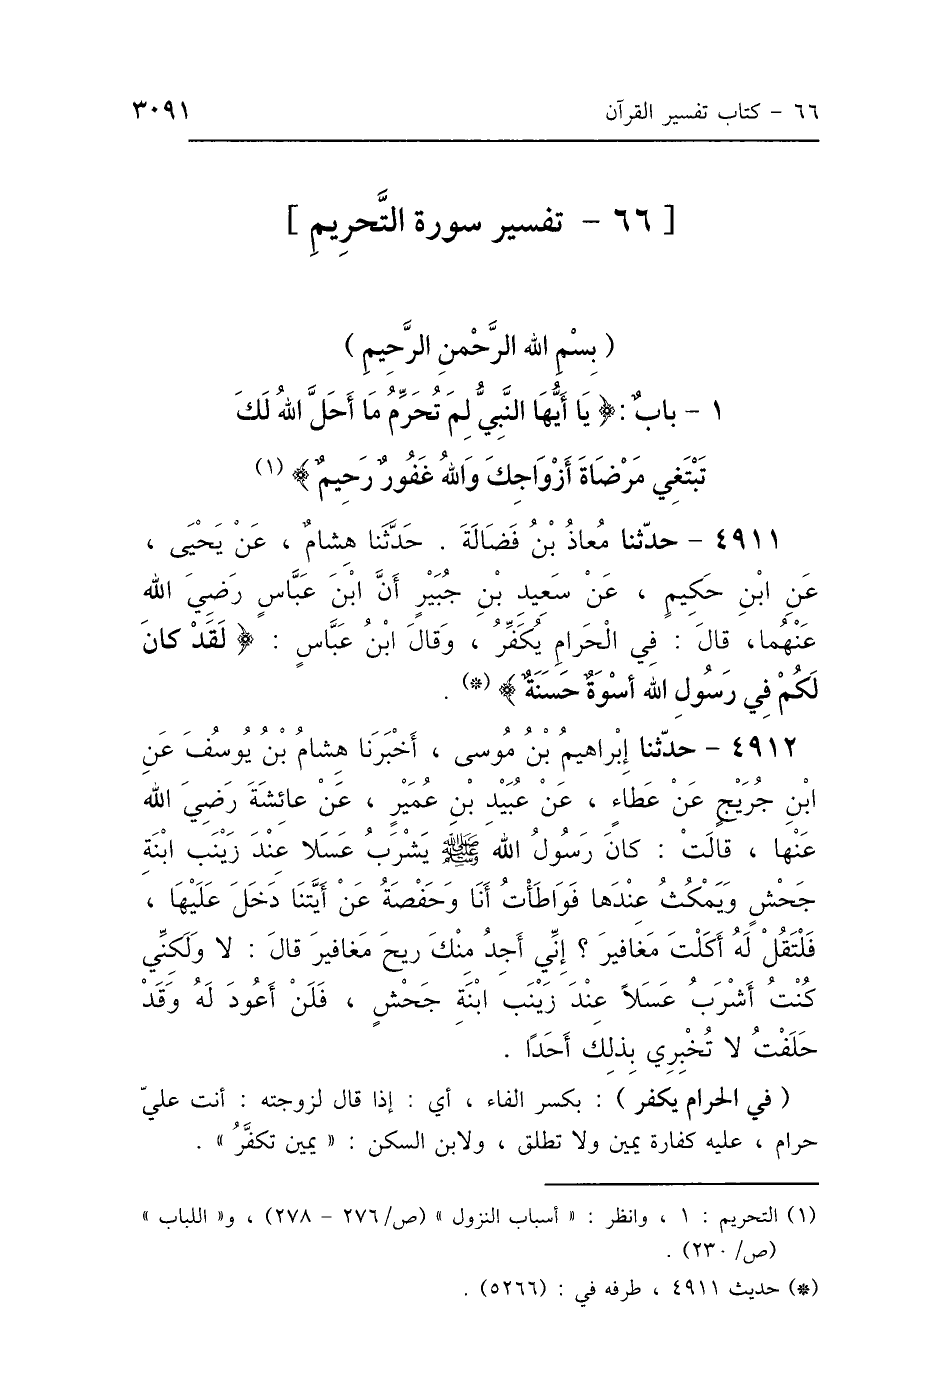 ٦٦ - كتاب تفسير القرآن ٣٠٩١
[ ٦٦ - تفسير سورة التَّحرِيمِ ]
( بِسْمِ الله الرَّحْمنِ الرَّحِيمِ )
١ - بابٌ : ﴿ يَا أَيُّهَا النَّبِيُّ لِمَ تُحَرِّمُ مَا أَحَلَّ اللهُ لَكَ
تَبْتَغِي مَرْضَاةَ أَزْوَاجِكَ وَاللهُ غَفُورٌ رَحِيمٌ ﴾ (١)
٤٩١١ - حدّثنا مُعاذُ بْنُ فَضَالَةَ . حَدَّثَنا هِشامٌ ، عَنْ يَحْيَى ،
عَنِ ابْنِ حَكِيمٍ ، عَنْ سَعِيدِ بْنِ جُبَيْرٍ أَنَّ ابْنَ عَبَّاسٍ رَضِيَ الله
عَنْهُما، قالَ : فِي الْحَرامِ يُكَفِّرُ ، وَقالَ ابْنُ عَبَّاسٍ : ﴿ لَقَدْ كانَ
لَكُمْ فِي رَسُولِ الله أسْوَةٌ حَسَنَةٌ ﴾ (*) .
٤٩١٢ - حدّثنا إِبْراهِيمُ بْنُ مُوسى ، أَخْبَرَنا هِشامُ بْنُ يُوسُفَ عَنِ
ابْنِ جُرَيْجٍ عَنْ عَطاءٍ ، عَنْ عُبَيْدِ بْنِ عُمَيْرٍ ، عَنْ عائِشَةَ رَضِيَ الله
عَنْها ، قالَتْ : كانَ رَسُولُ الله ﷺ يَشْرَبُ عَسَلا عِنْدَ زَيْنَبِ ابْنَةِ
جَحْشٍ وَيَمْكُثُ عِنْدَها فَوَاطَأْتُ أنَا وَحَفْصَةُ عَنْ أيَّتُنَا دَخَلَ عَلَيْهَا ،
فَلْتَقُلْ لَهُ أكَلْتَ مَغافِيرَ ؟ إنِّي أجِدُ مِنْكَ رِيحَ مَغافِيرَ قالَ : لا وَلَكِنِّي
كُنْتُ أَشْرَبُ عَسَلاً عِنْدَ زَيْنَبِ ابْنَةِ جَحْشٍ ، فَلَنْ أَعُودَ لَهُ وَقَدْ
حَلَفْتُ لا تُخْبِرِي بِذلِكِ أَحَدًا .
( في الحرام يكفر ) : بكسر الفاء ، أي : إذا قال لزوجته : أنت عليّ
حرام ، عليه كفارة يمين ولا تطلق ، ولابن السكن : « يمين تكفَّرُ » .
(١) التحريم : ١ ، وانظر : « أسباب النزول » (ص/ ٢٧٦ - ٢٧٨) ، و« اللباب »
(ص/ ٢٣٠) .
(*) حديث ٤٩١١ ، طرفه في : (٥٢٦٦) .